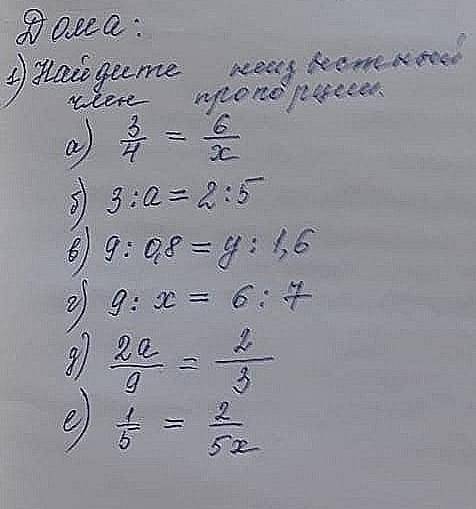 Дома:
1) Найдите неизвестный
член пропорции.
а) 3/4 = 6/x
б) 3 : a = 2 : 5
в) 9 : 0,8 = y : 1,6
г) 9 : x = 6 : 7
д) 2a/9 = 2/3
е) 1/5 = 2/5x